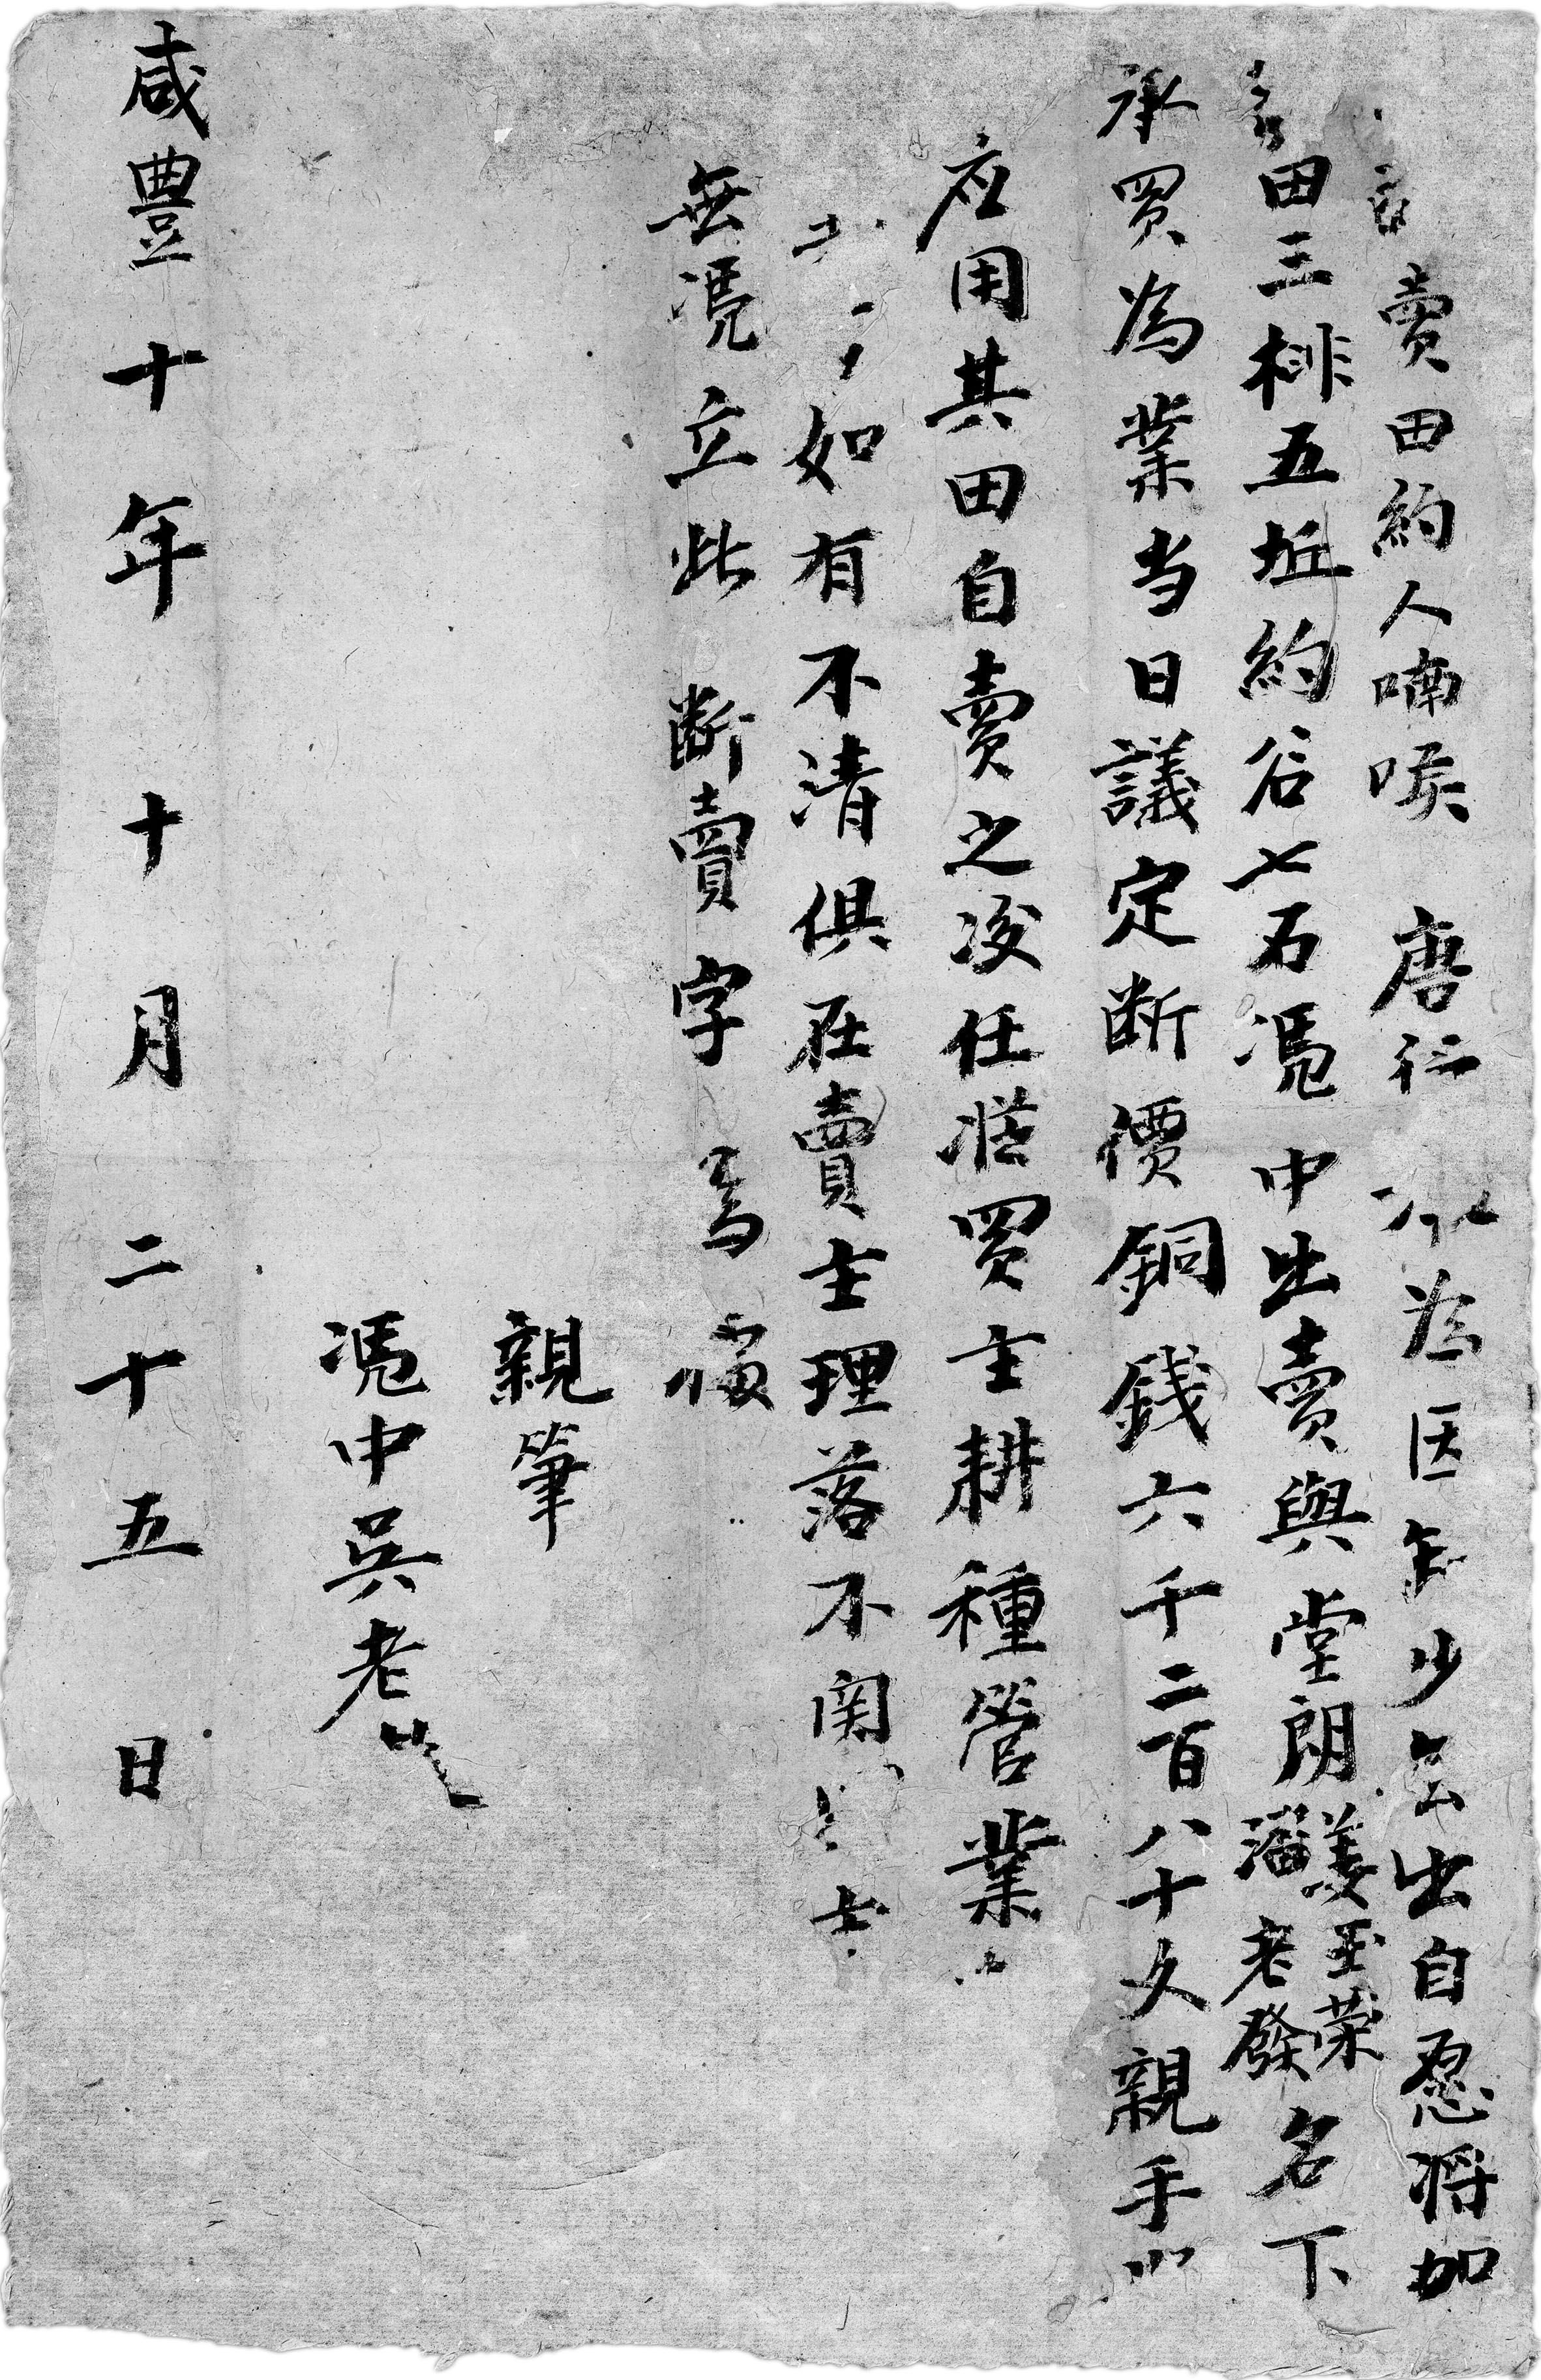 賣田約人喃唉唐行為因缺少無出自愿將加
田三棑五坵約谷七石凴中出賣與堂朗姜玉荣潘老發名下
承買為業当日議定断價銅銭六千二百八十文親手
应用其田自賣之後任從買主耕種管業
如有不清俱在賣主理落不関
無凴立此断賣字為
親筆
凴中吳老
咸豊十年十月二十五日